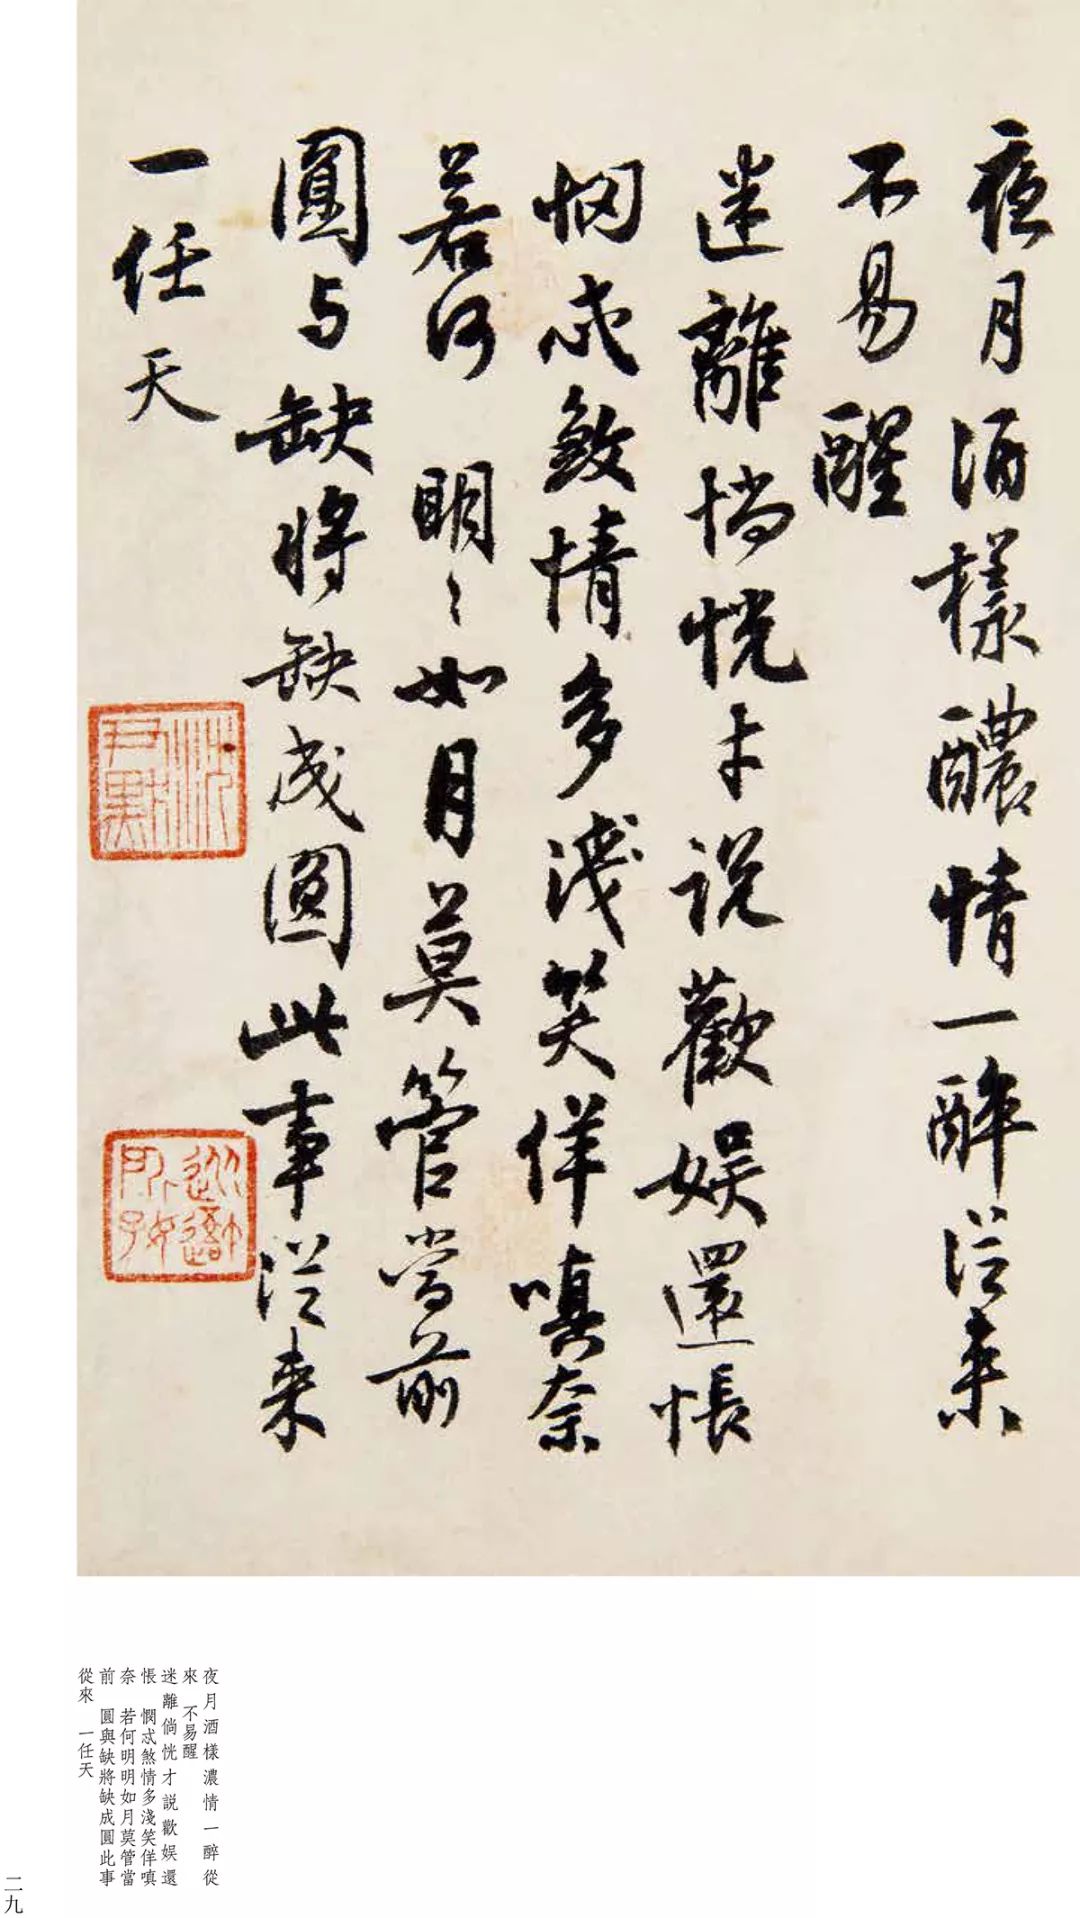 夜月酒樣醲情一醉從来
不易醒
迷離惝恍才説歡娱還悵
惘忒煞情多淺笑佯嗔奈
若何明〻如月莫管當前
圓与缺將缺成圓此事從来
一任天
沈尹默
夜月酒樣濃情一醉從
來 不易醒
迷離倘恍才説歡娱還
悵 惘忒煞情多淺笑佯嗔
奈 若何明明如月莫管當
前 圓與缺將缺成圓此事
從來 一任天
二九